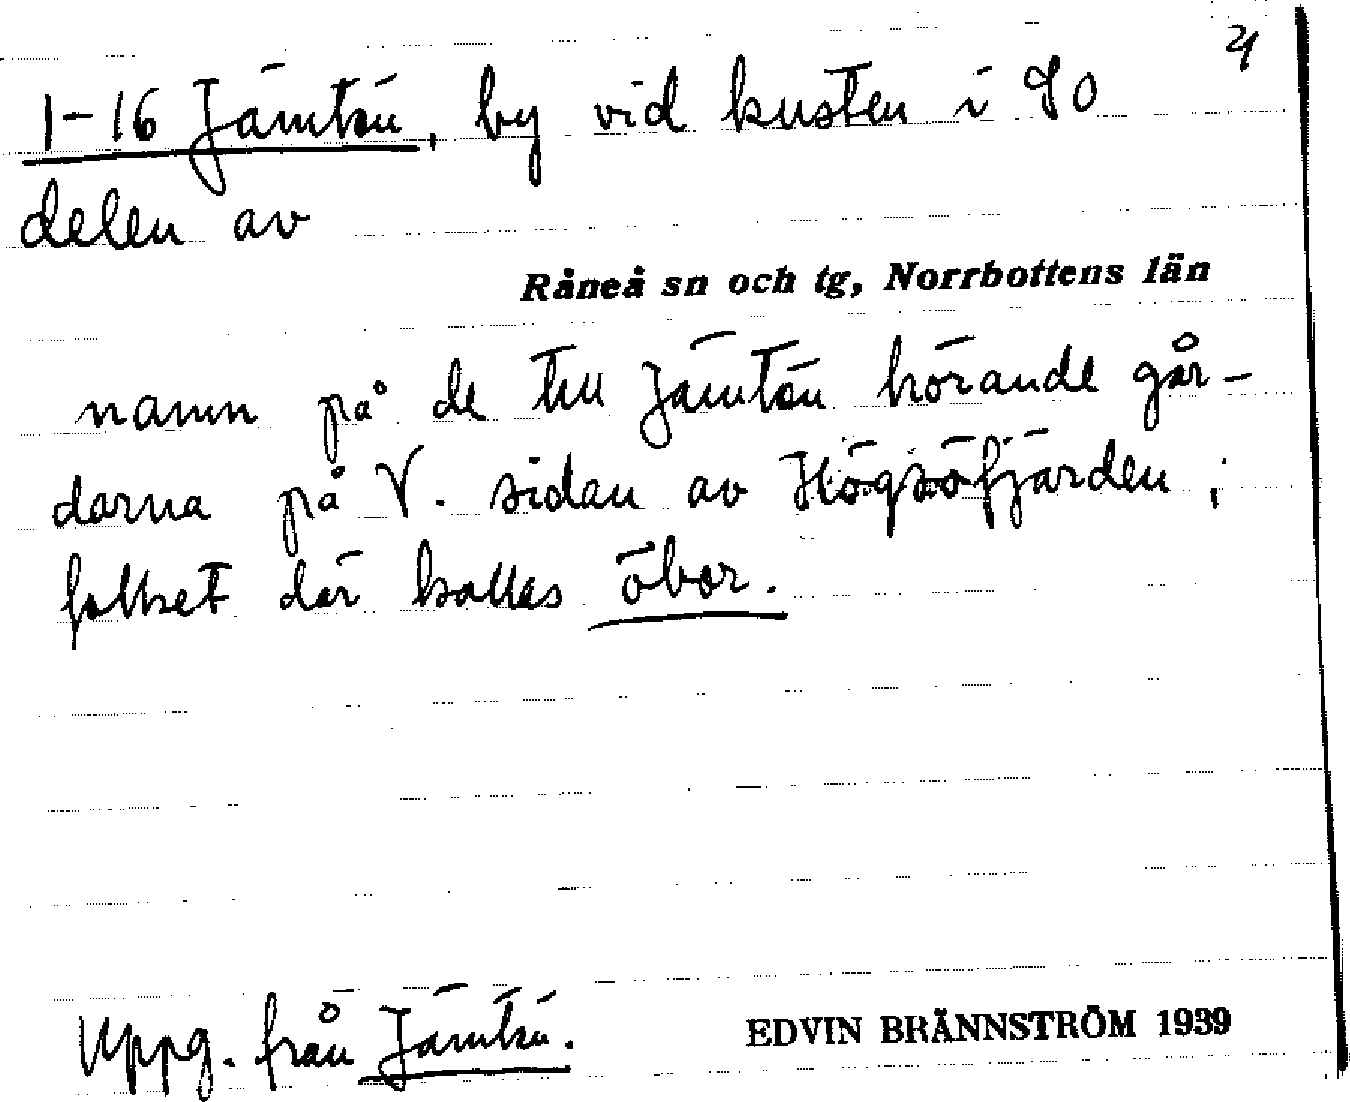 21
1-16 Jämtön, by vid kusten i SO
delen av
Råneå sn och tg, Norrbottens län
namn på de till Jämtön hörande går-
darna på V. sidan av Högsöfjärden;
folket där kallas öbor.
Uppg. från Jämtön.
EDVIN BRÄNNSTRÖM 1939